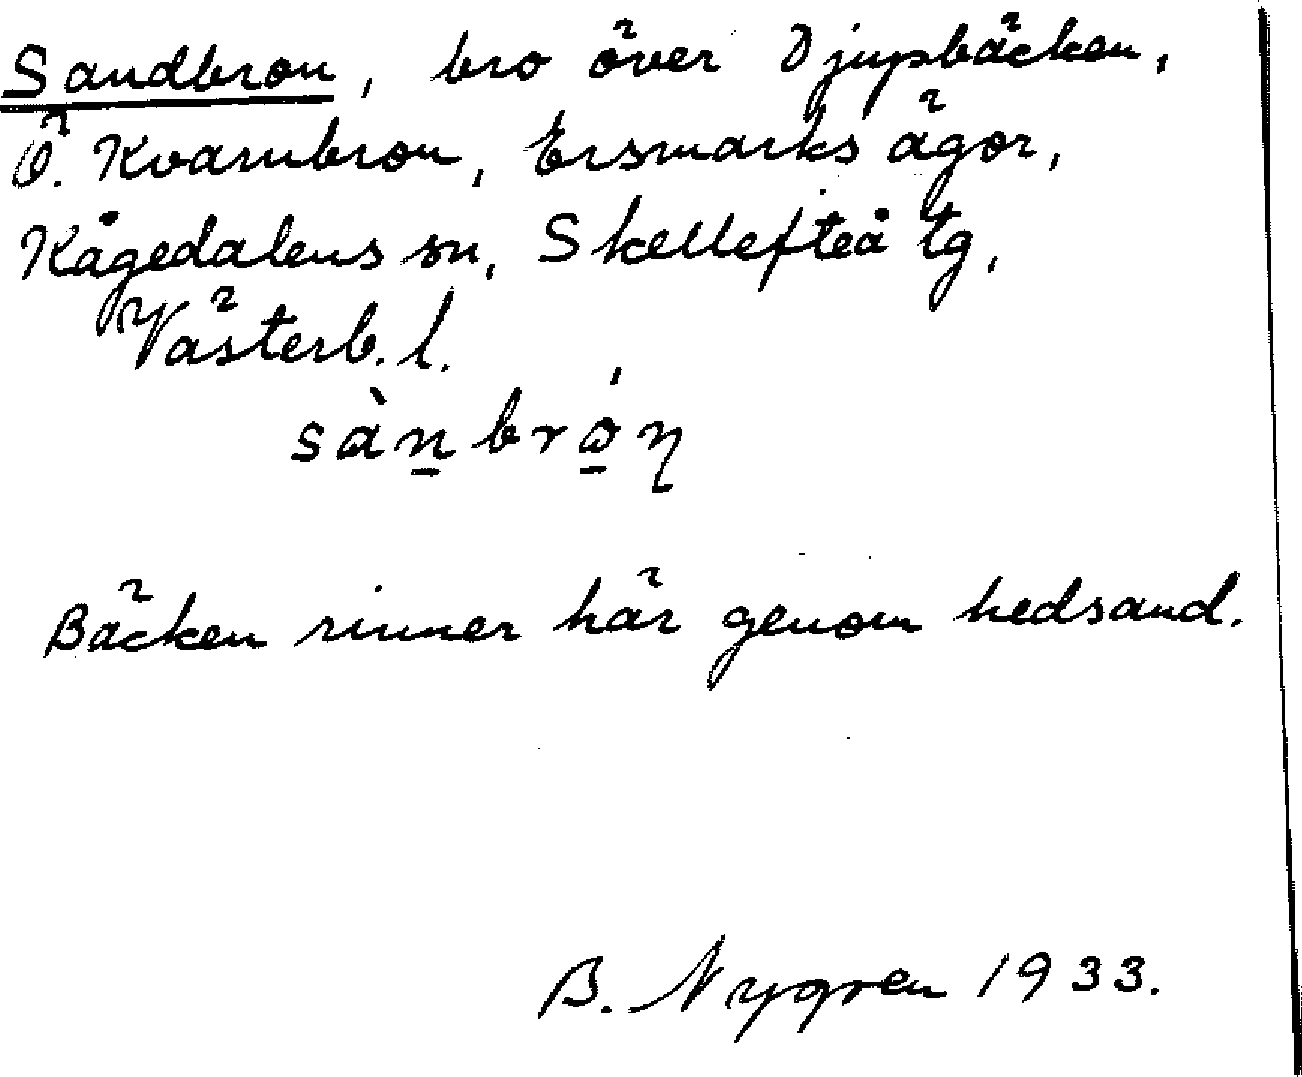 Sandbron, bro över Djupbäcken,
Ö. Kvarnbron, Ersmarks ägor,
Kågedalens sn, Skellefteå tg,
Västerb. l.
sànbrǫ́n
Bäcken rinner här genom hedsand.
B. Nygren 1933.